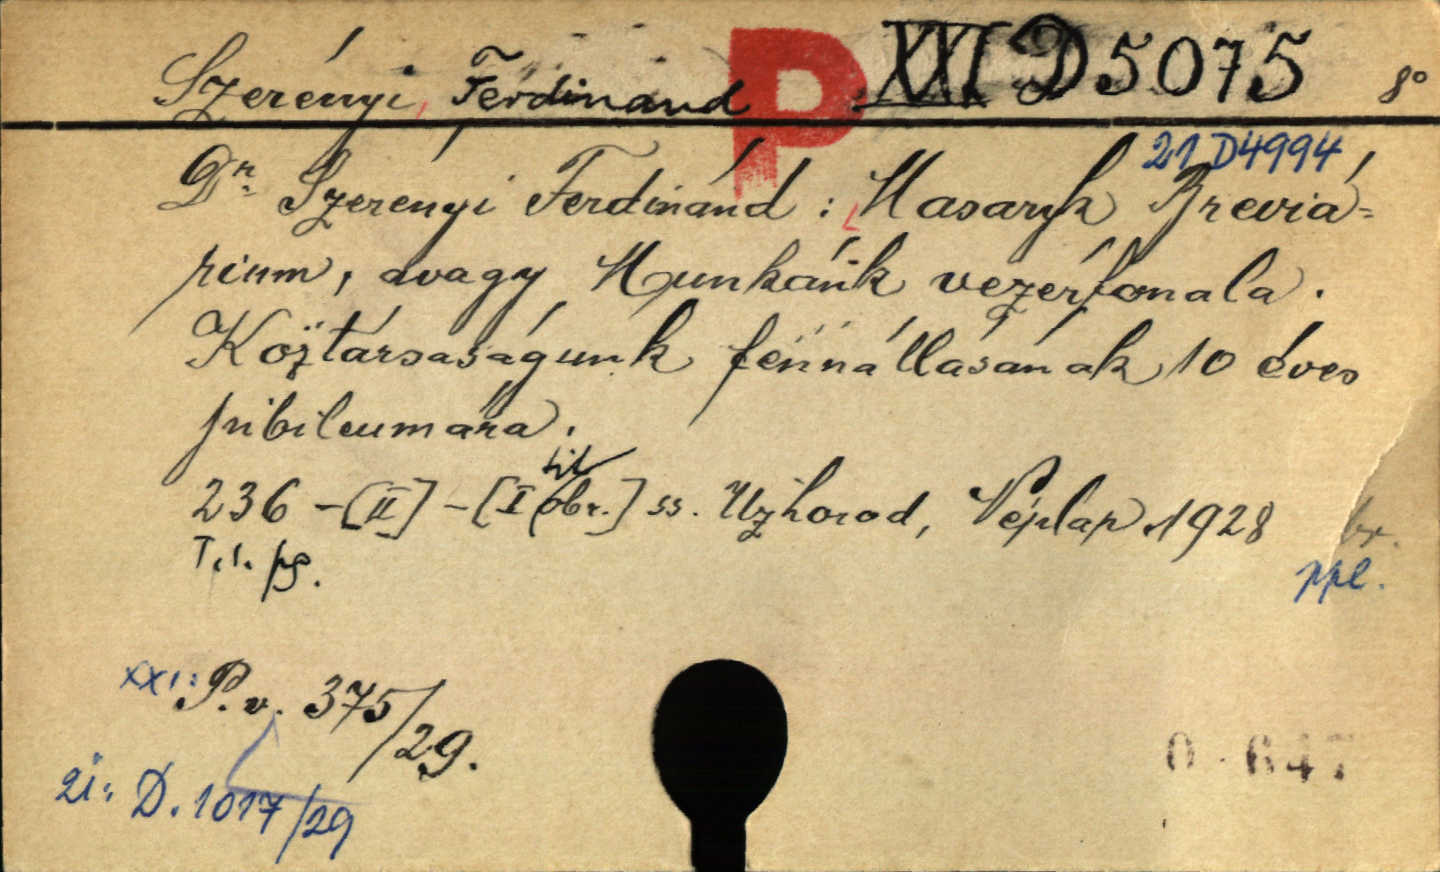 Szerényi, Ferdinand P XXI D 5075 8°
21 D 4994
Dr. Szerényi Ferdinánd: Masaryk Breviá=
rium, avagy Munkánk vezérfonala.
Köztársaságunk fennállásának 10 éves
jubileumára.
til
236 - [II] - [I obr.] ss. Užhorod, Néplap 1928
br.
T. t. pg.
ppl.
XXI: P. v. 375/29.
21: D. 1017/29
0 - 647